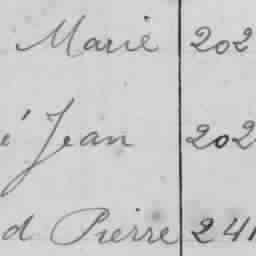 Marie 202
é Jean 202
d Pierre 241